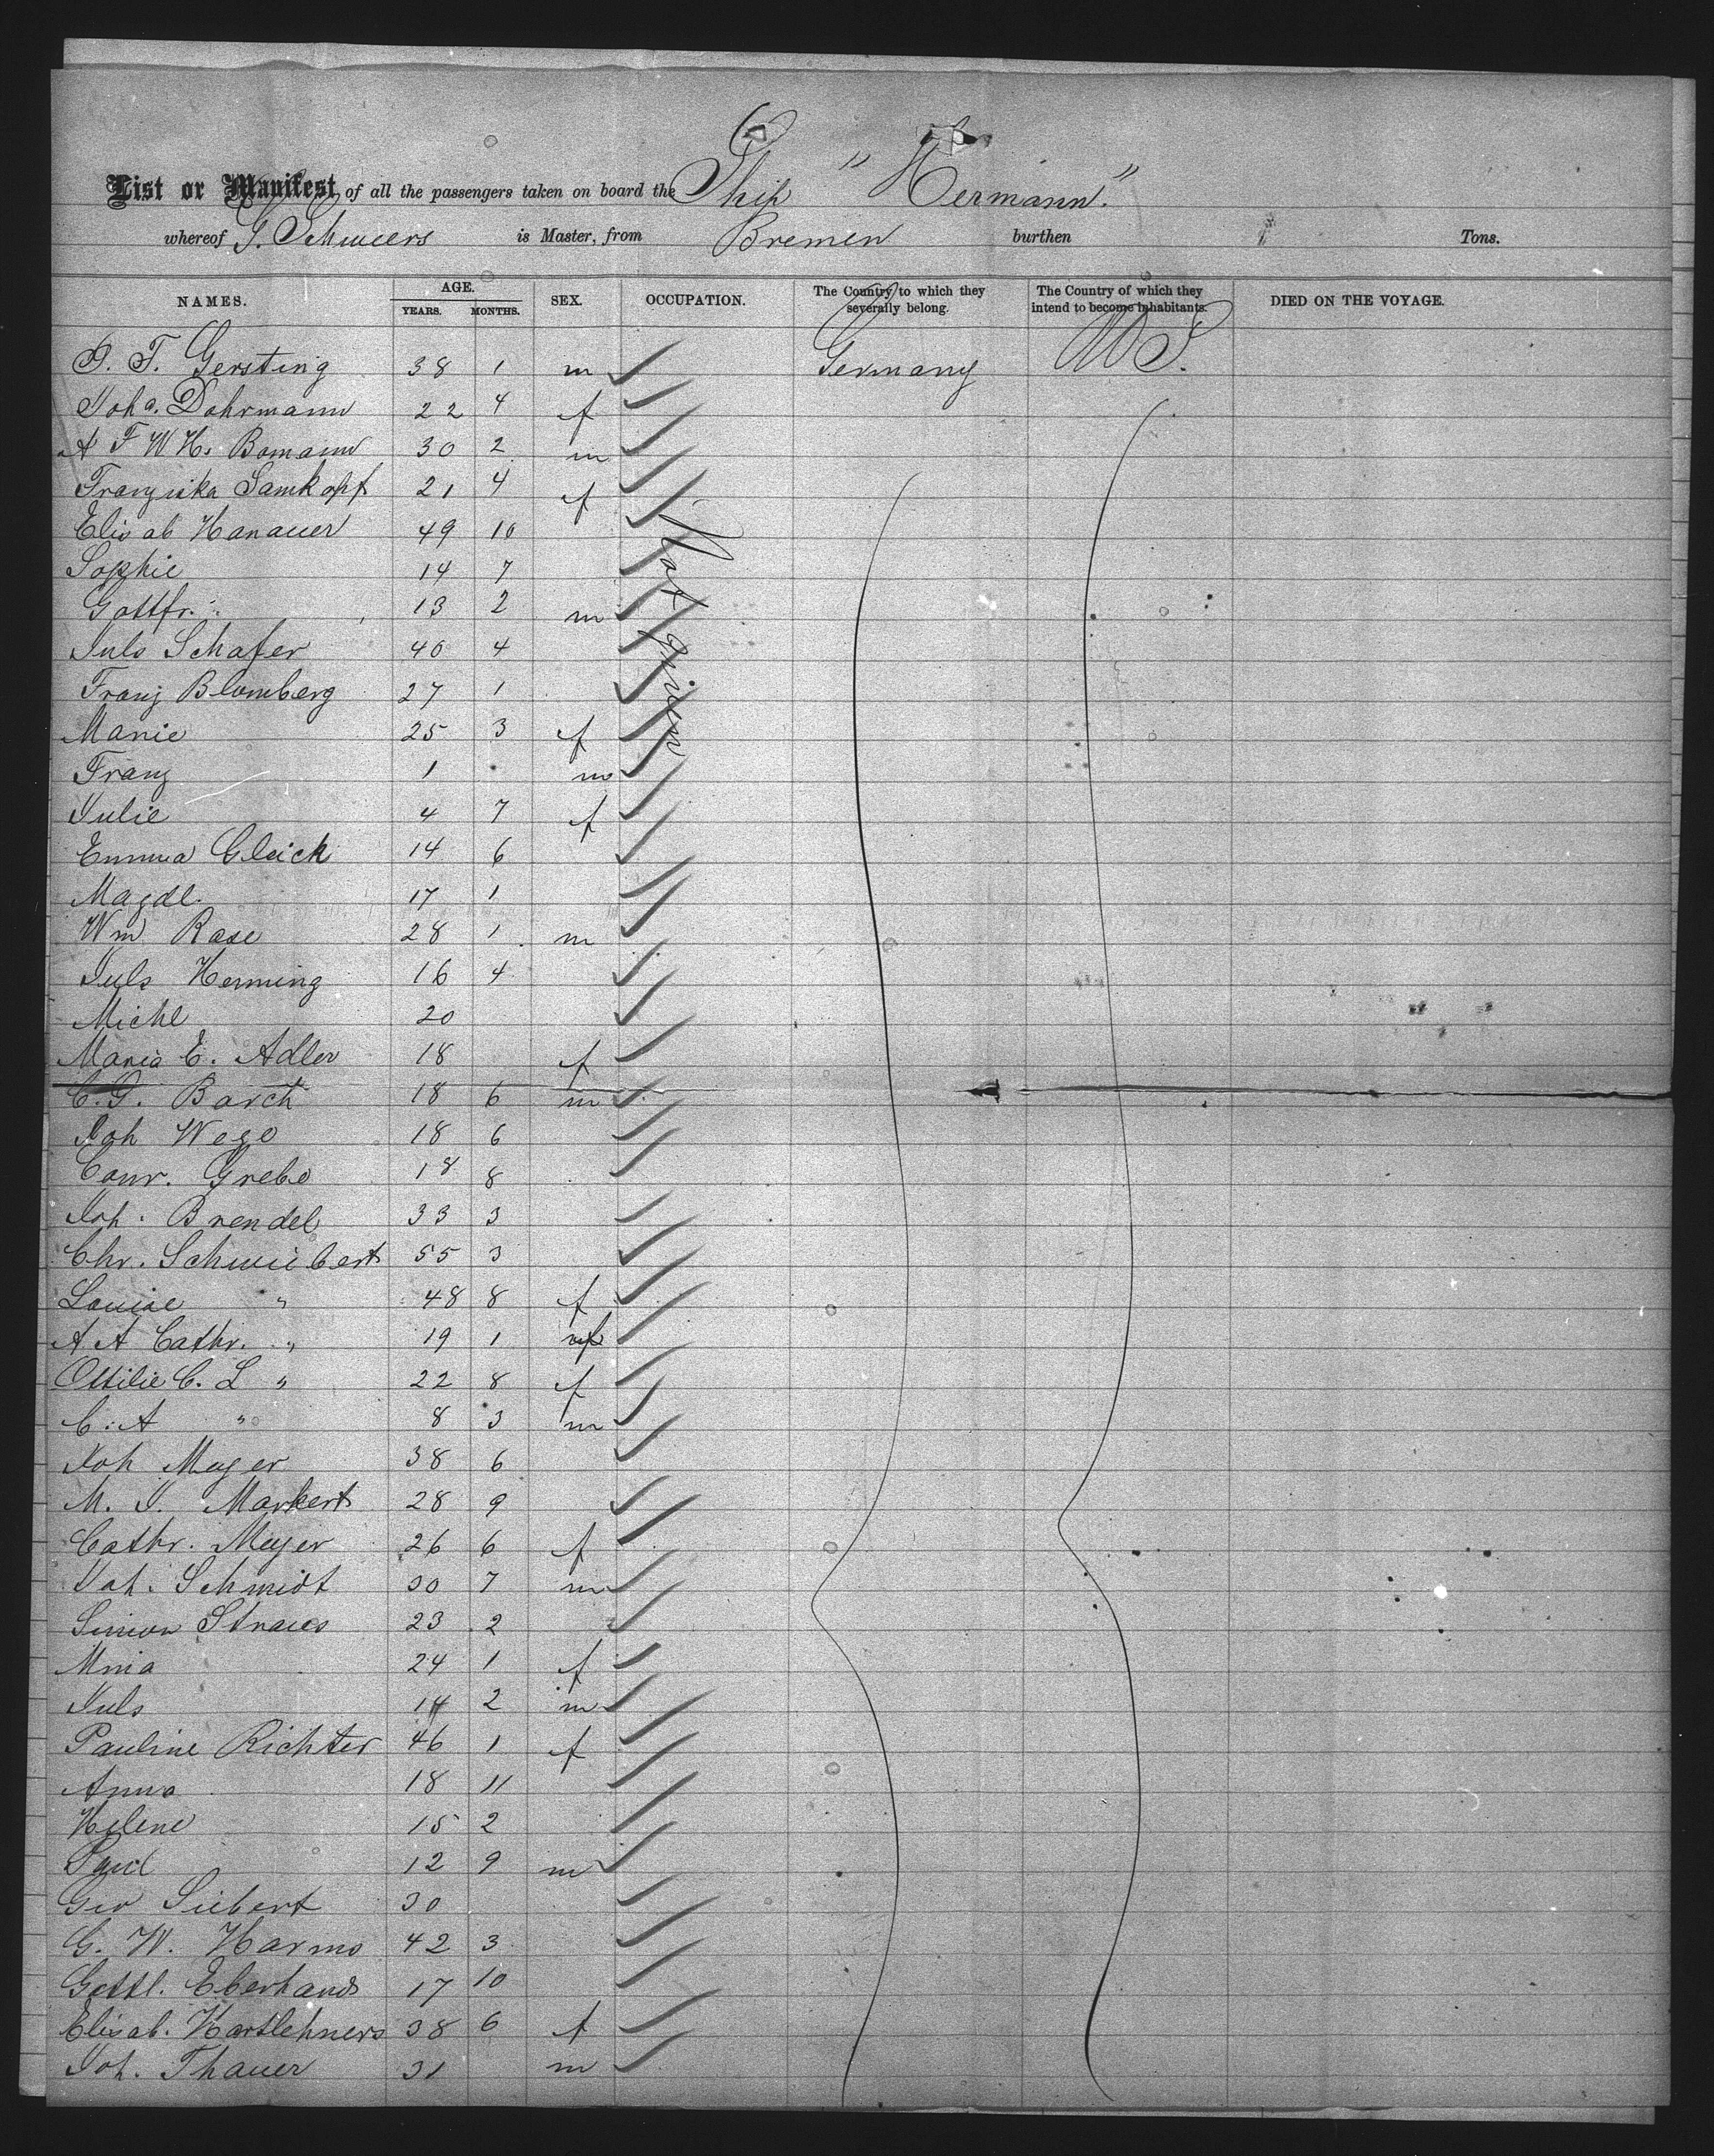 List or Manifest of all the passengers taken on board the Ship "Hermann."
whereof G. Schweers is Master, from Bremen burthen Tons.
NAMES. AGE. YEARS. MONTHS. SEX. OCCUPATION. The Country to which they severally belong. The Country of which they intend to become inhabitants. DIED ON THE VOYAGE.
T. Gersting 38 1 m Germany U S.
Joha. Dohrmann 22 4 f
A F W H. Bomann 30 2 m
Franziska Samkopf 21 4 f
Elisab Hanauer 49 10
Sophie 14 7
Gottfr. 13 2 m
Not given
Juls Schafer 40 4
Franz Blomberg 27 1
Marie 25 3 f
Franz 1 m
Julie 4 7 f
Emma Gleich 14 6
Magdl. 17 1
Wm Rase 28 1 m
Juls Henning 16 4
Michl 20
Maria E. Adler 18 f
C. G. Barch 18 6 m
Joh Wege 18 6
Conr. Grebe 18 8
Joh. Brendel 33 3
Chr. Schwiebert 55 3
Louise " 48 8 f
A A Cathr. " 19 1 f
Ottilie C. L " 22 8 f
C. A " 8 3 m
Joh Meyer 38 6
M. J. Markert 28 9
Cathr. Meyer 26 6 f
Joh. Schmidt 30 7 m
Simon Straus 23 2
Mina 24 1 f
Juls 14 2 m
Pauline Richter 46 1 f
Anna 18 11
Helene 15 2
Paul 12 9 m
Geo Siebert 30
G. W. Harms 42 3
Gottl. Eberhards 17 10
Elisab. Hartlehners 38 6 f
Joh. Thauer 31 m